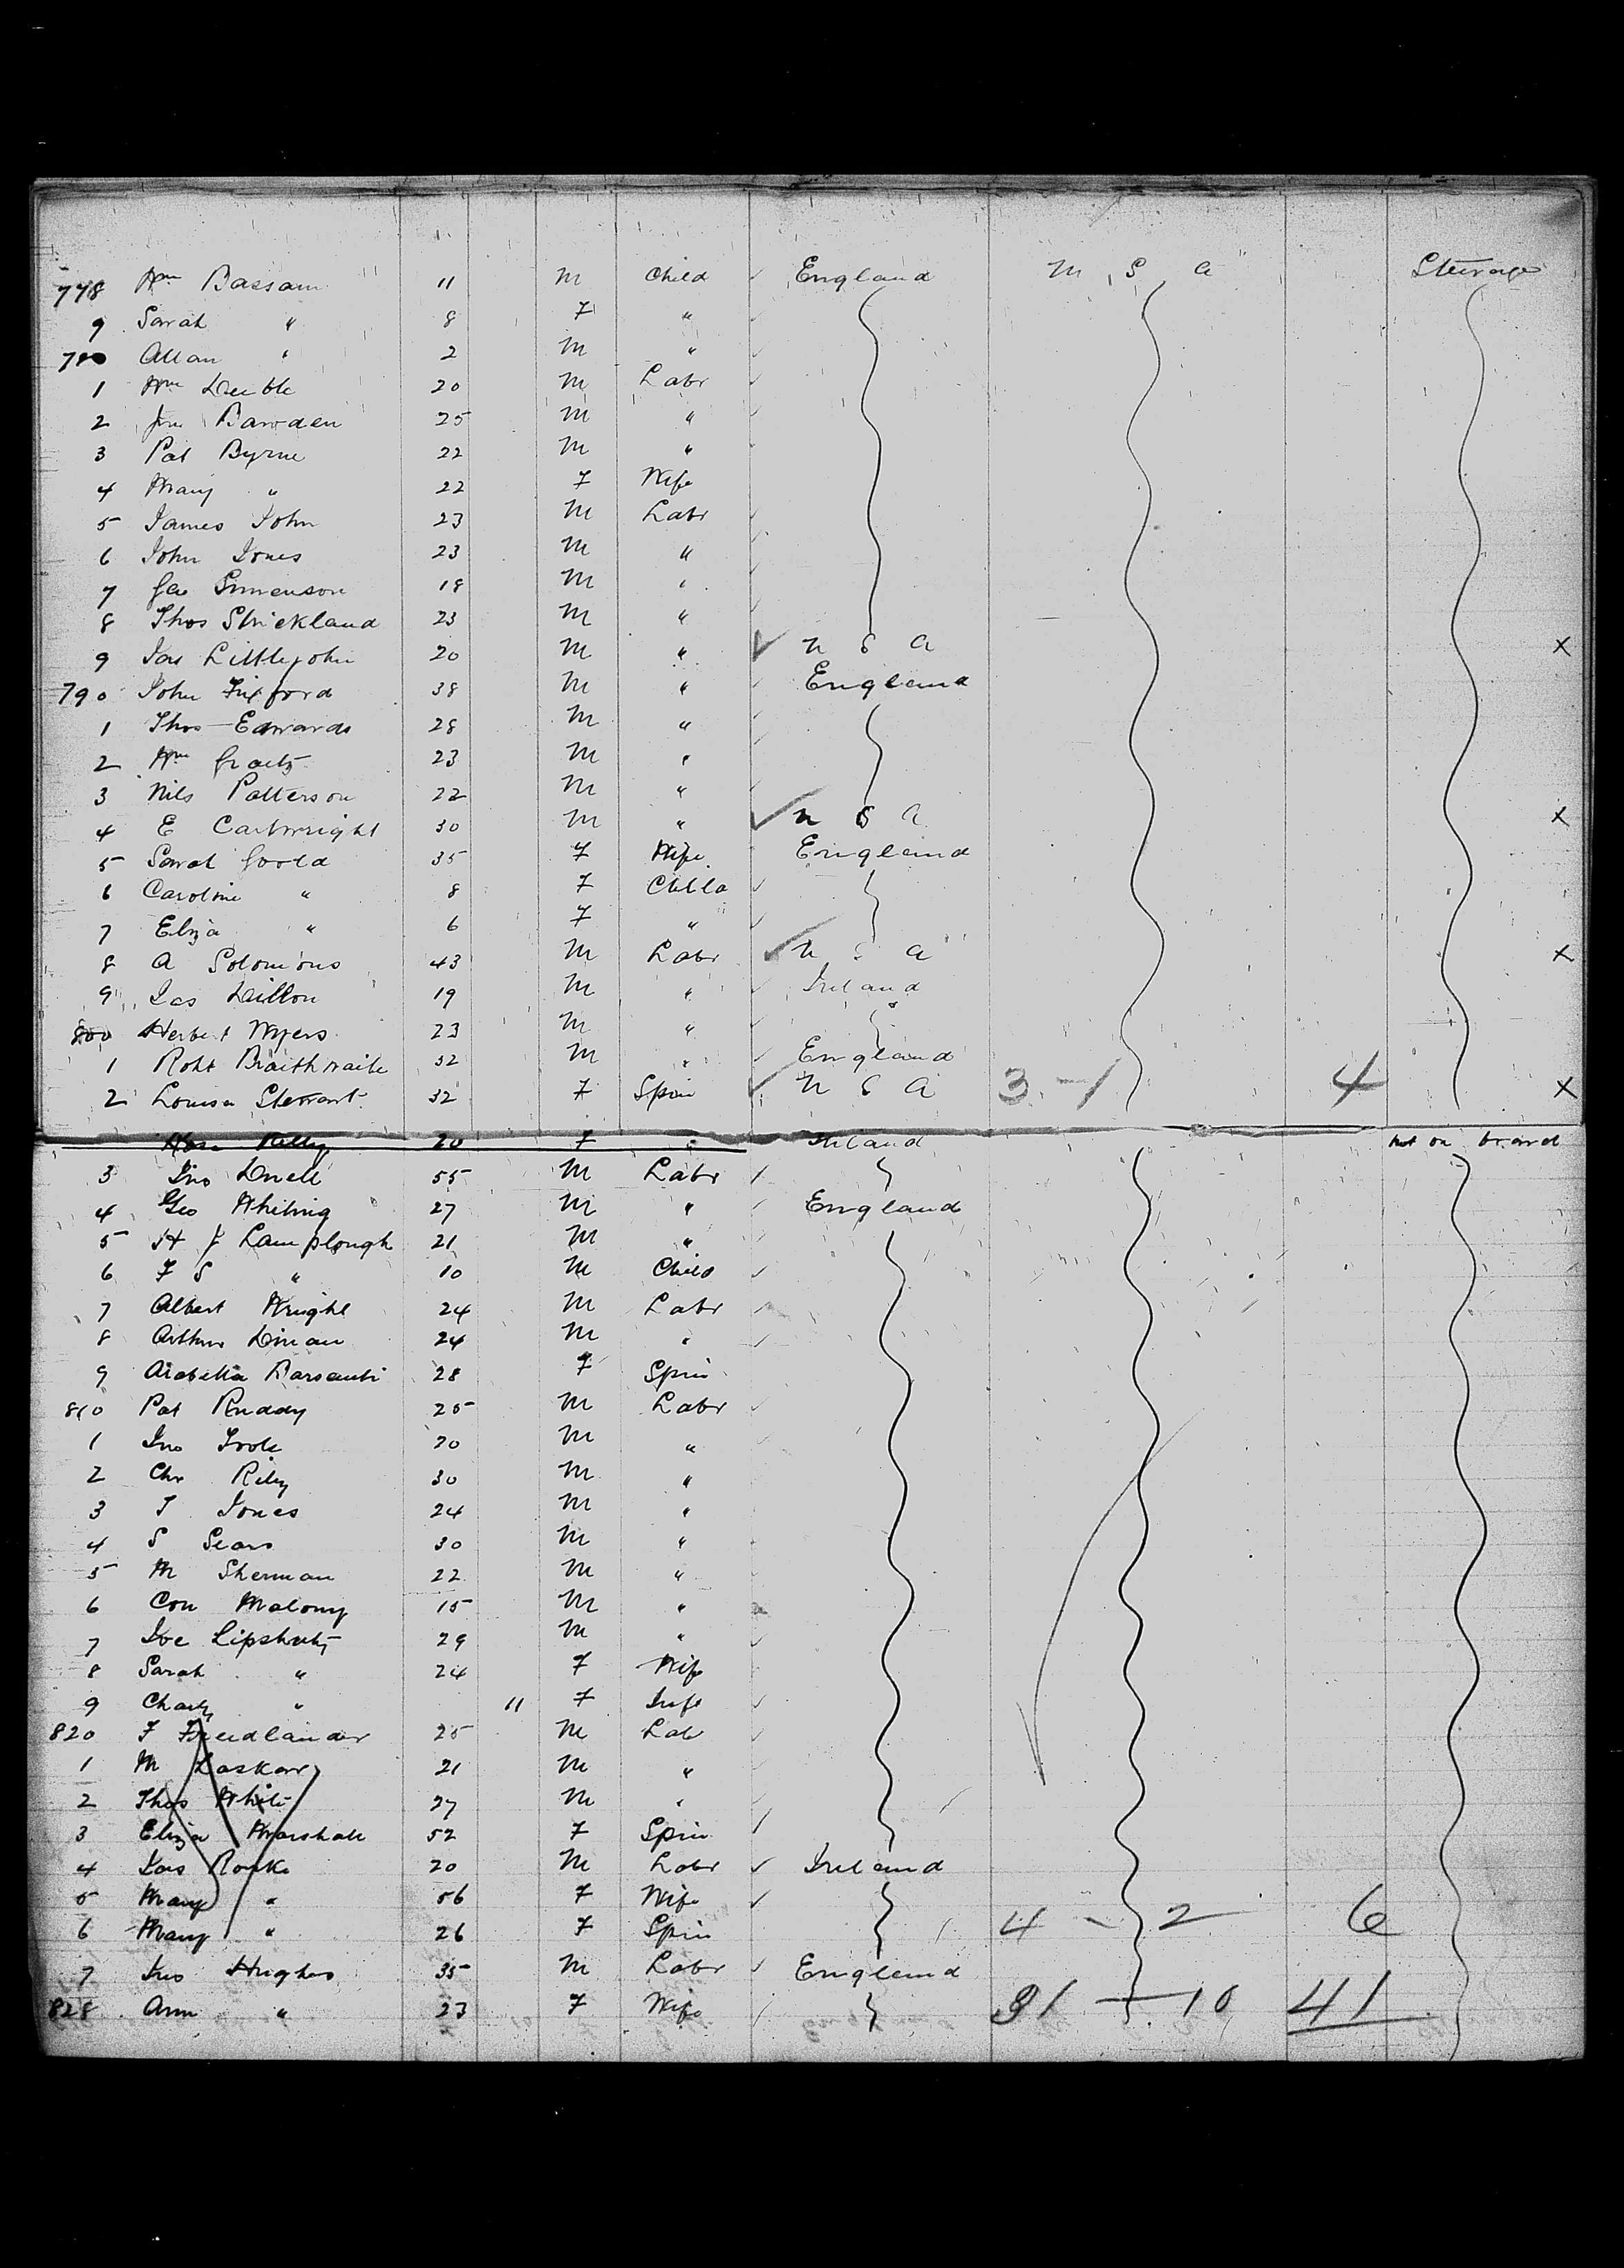 778 Wm Bassam 11 M Child England U S A Steerage
9 Sarah " 8 F "
780 Allan " 2 M "
1 Wm 20 M Labr
2 Jno Bawden 25 M "
3 Pat Byrne 22 M "
4 Mary " 22 F Wife
5 James John 23 M Labr
6 John Jones 23 M "
7 Geo 18 M "
8 Thos Strickland 23 M "
9 Jas Littlejohn 20 M " U S A X
790 John 38 M " England
1 Thos Edwards 28 M "
2 Wm 23 M "
3 Nils Patterson 22 M "
4 E Cartwright 30 M " U S A X
5 Sarah Goold 35 F Wife England
6 Caroline " 8 F Child
7 Eliza " 6 F "
8 A Solomons 43 M Labr U S A X
9 Jas Dillon 19 M " Ireland
800 Herbert Myers 23 M "
1 Robt Braithwaite 32 M " England
2 Louisa Stewart 32 F Spin U S A 3 - 1 4 X
Rose Kelly 20 F " Ireland not on board
3 Jno 55 M Labr
4 Geo Whiting 27 M " England
5 H J Lamplough 21 M "
6 F S " 10 M Child
7 Albert Wright 24 M Labr
8 Arthur 24 M "
9 Arabella Barsanti 28 F Spin
810 Pat Ruddy 25 M Labr
1 Jno Toole 20 M "
2 Chr Riley 30 M "
3 T Jones 24 M "
4 S Sears 30 M "
5 M Sherman 22 M "
6 Con Malony 15 M "
7 Joe Lipshutz 29 M "
8 Sarah " 24 F Wife
9 " 11 F Inft
820 F Friedlander 25 M Lab
1 M Laskar 21 M "
2 Thos White 27 M "
3 Eliza Marshall 52 F Spin
4 Jas Rourke 20 M Labr Ireland
5 Mary " 56 F Wife
6 Mary " 26 F Spin 4 - 2 6
7 Jno Hughes 35 M Labr England
828 Ann " 23 F Wife 31 - 10 41